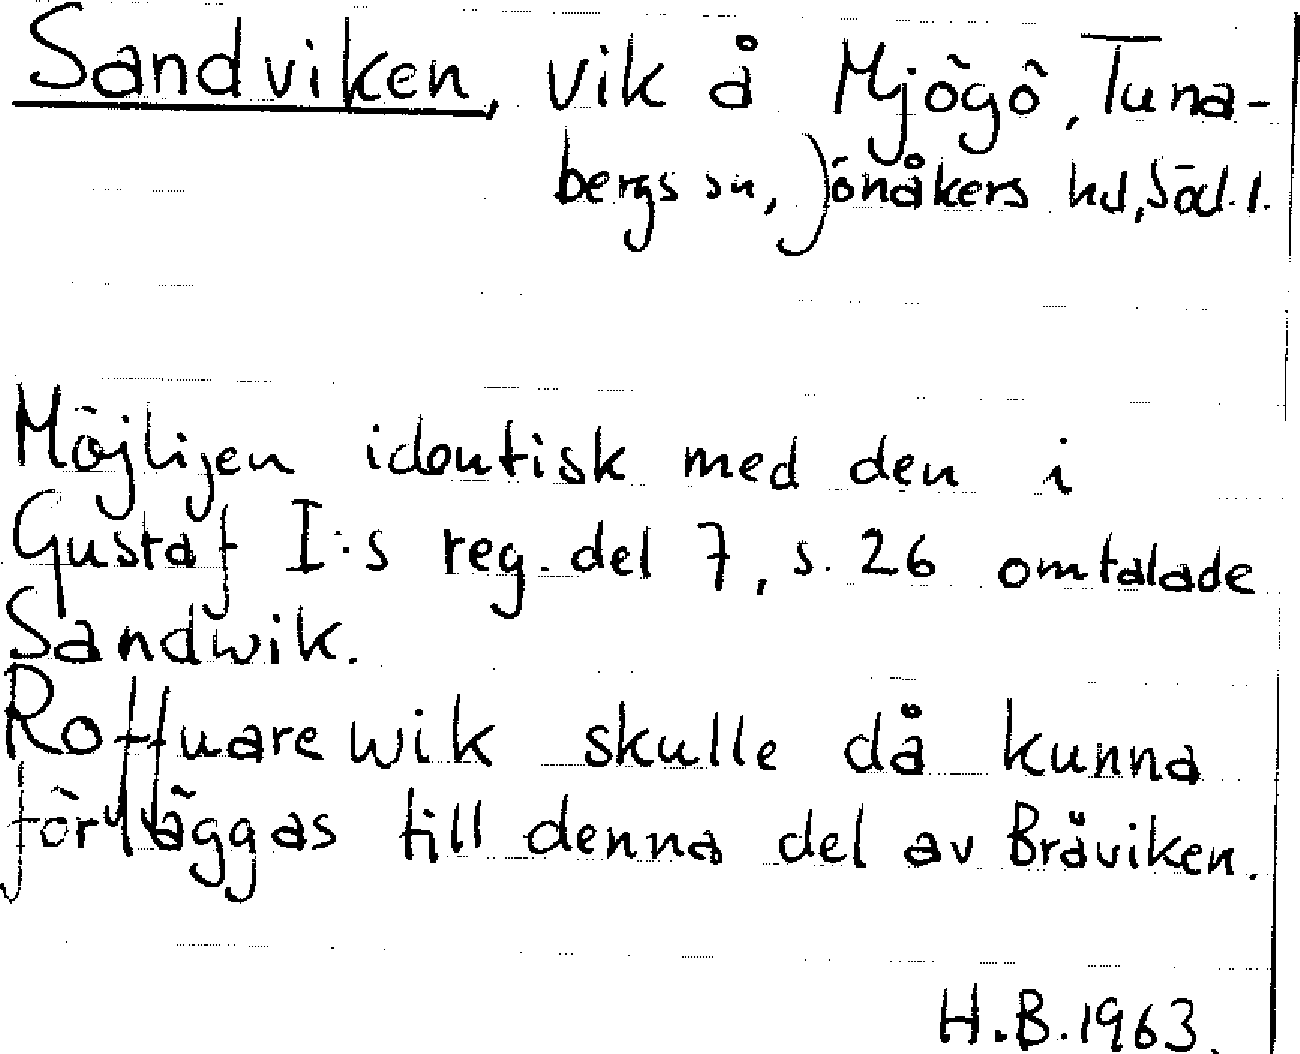 Sandviken, vik å Mjögö, Tuna-
bergs sn, Jönåkers hd, Söd. l.
Möjligen identisk med den i
Gustaf I:s reg. del 7, s. 26 omtalade
Sandwik.
Rottnarewik skulle då kunna
förläggas till denna del av Bråviken.
H.B. 1963.